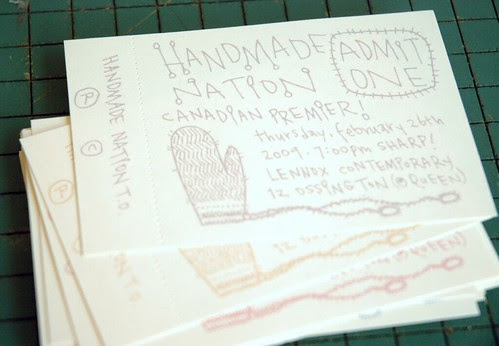 HANDMADE NATION T.O.
P
C
HANDMADE
NATION
ADMIT
ONE
CANADIAN PREMIER!
thursday, february 26th
2009, 7:00pm SHARP!
LENNOX CONTEMPORARY
12 OSSINGTON (@QUEEN)
HANDMADE NATION T.O.
P
C
12 OSSINGTON (@QUEEN)